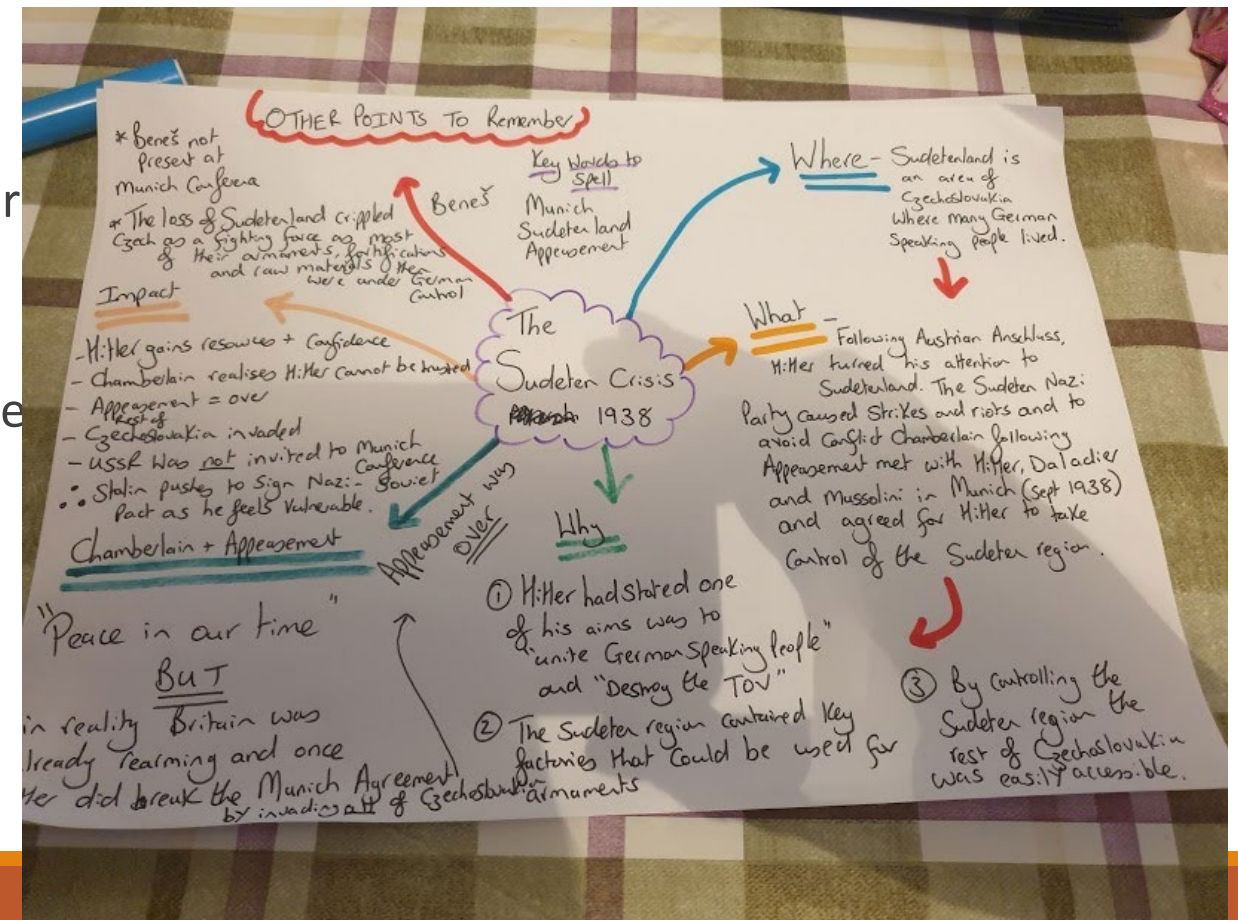 r
e
OTHER POINTS TO Remember
* Beneš not
present at
Munich Conference
* The loss of Sudetenland crippled
Czech as a fighting force as most
of their armaments, fortifications
and raw materials then
were under German
Control
Beneš
Key Words to
Spell
Munich
Sudetenland
Appeasement
Where - Sudetenland is
an area of
Czechoslovakia
Where many German
Speaking people lived.
The
Sudeten Crisis
1938
What -
Following Austrian Anschluss,
Hitler turned his attention to
Sudetenland. The Sudeten Nazi
Party caused Strikes and riots and to
avoid Conflict Chamberlain following
Appeasement met with Hitler, Daladier
and Mussolini in Munich (Sept 1938)
and agreed for Hitler to take
Control of the Sudeten region.
Impact
- Hitler gains resources + Confidence
- Chamberlain realises Hitler cannot be trusted
- Appeasement = over
rest of
- Czechoslovakia invaded
- USSR was not invited to Munich
Conference
∴ Stalin pushes to Sign Nazi - Soviet
Pact as he feels Vulnerable.
Chamberlain + Appeasement
"Peace in our time"
BUT
in reality Britain was
lready rearming and once
er did break the Munich Agreement
by invading all of Czechoslovakia
Appeasement was
over
Why
① Hitler had stated one
of his aims was to
"unite German Speaking People"
and "Destroy the TOV"
② The Sudeten region contained Key
factories that could be used for
armaments
③ By controlling the
Sudeten region the
rest of Czechoslovakia
was easily accessible.